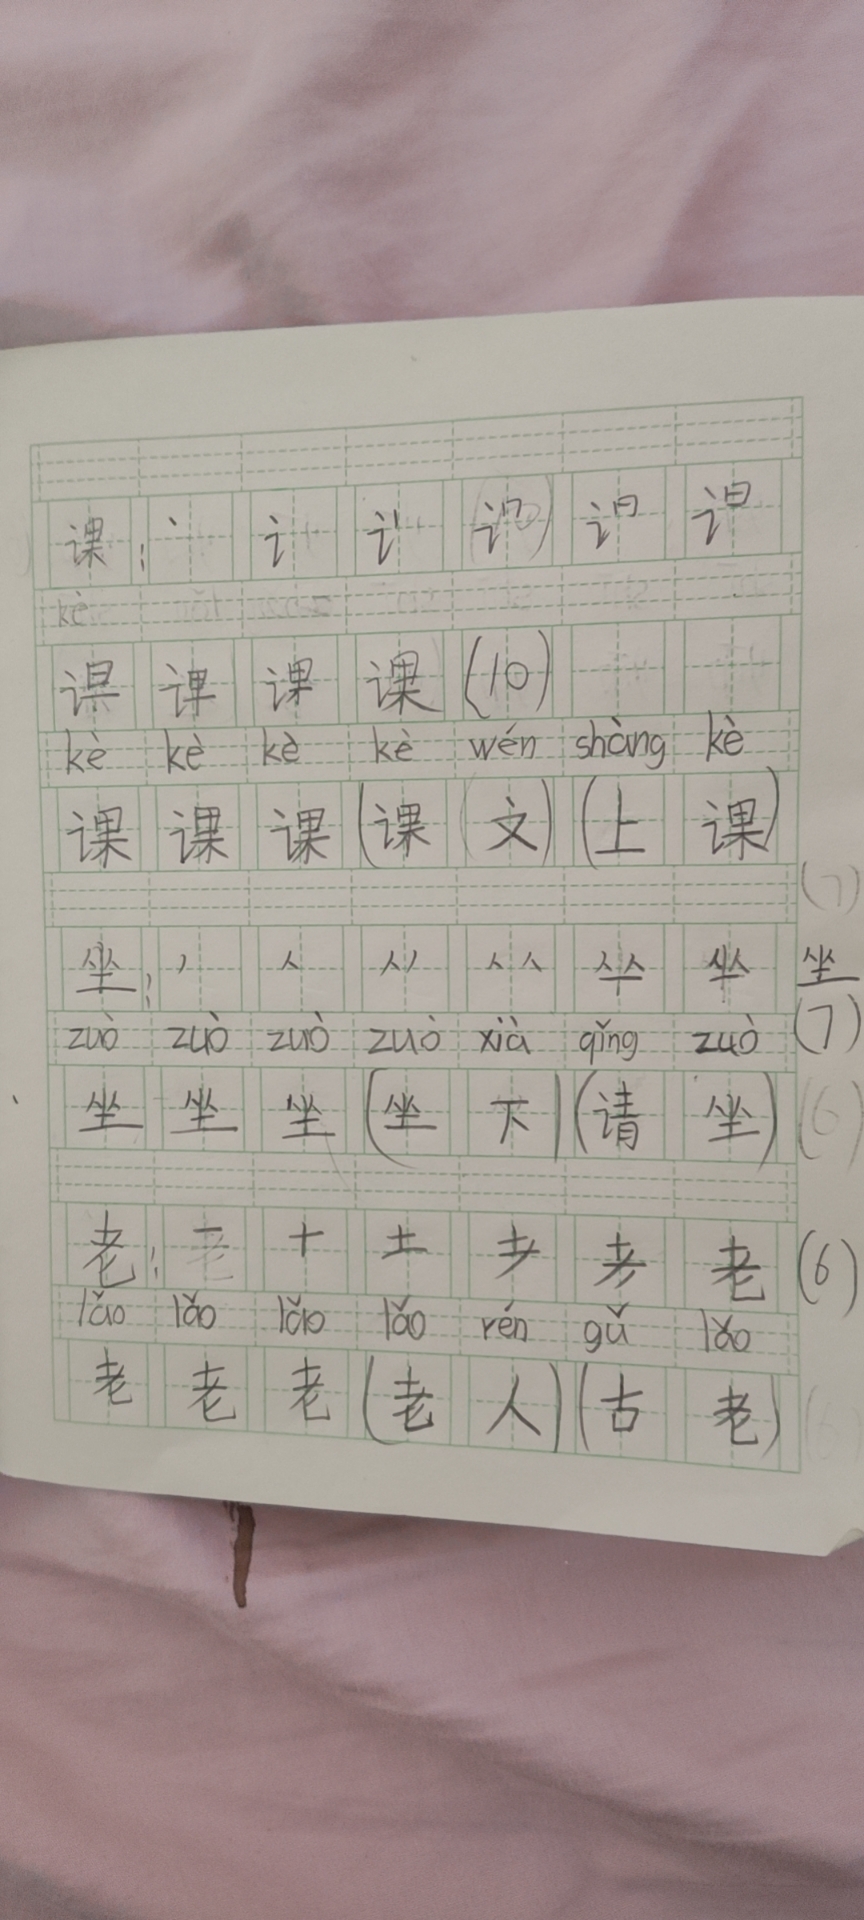 课: 丶 讠 订 训 识 识
kè
误 课 课 课 (10)
kè kè kè kè wén shàng kè
课 课 课 (课 文) (上 课)
坐: 丿 人 坐
zuò zuò zuò zuò xià qǐng zuò (7)
坐 坐 坐 (坐 下) (请 坐)
老: 一 十 土 耂 老 (6)
lǎo lǎo lǎo lǎo rén gǔ lǎo
老 老 老 (老 人) (古 老)